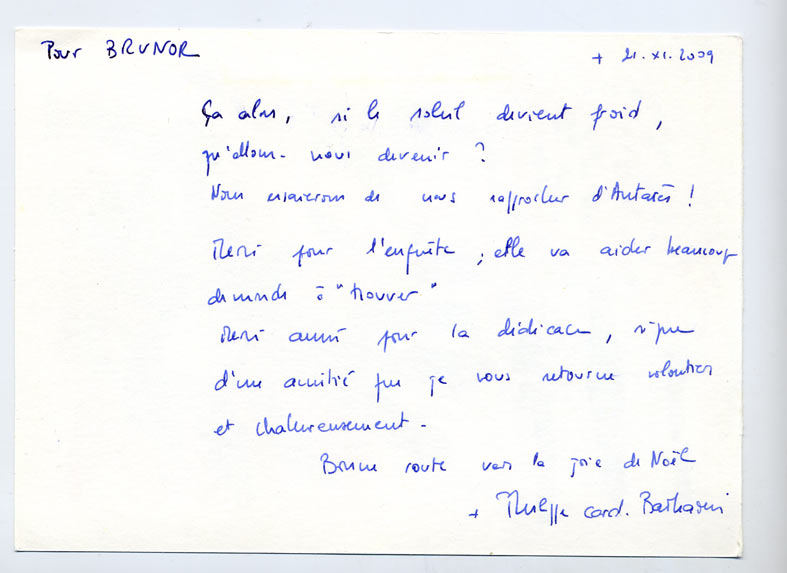 Pour BRUNOR
+ 21.XI.2009
Ça alors, si le soleil devient froid,
qu'allons-nous devenir ?
Nous essaierons de nous rapprocher d'Antarès !
Merci pour l'enquête ; elle va aider beaucoup
de monde à "trouver"
Merci aussi pour la dédicace, signe
d'une amitié que je vous retourne volontiers
et chaleureusement.
Bonne route vers la joie de Noël
+ Philippe card. Barbarin